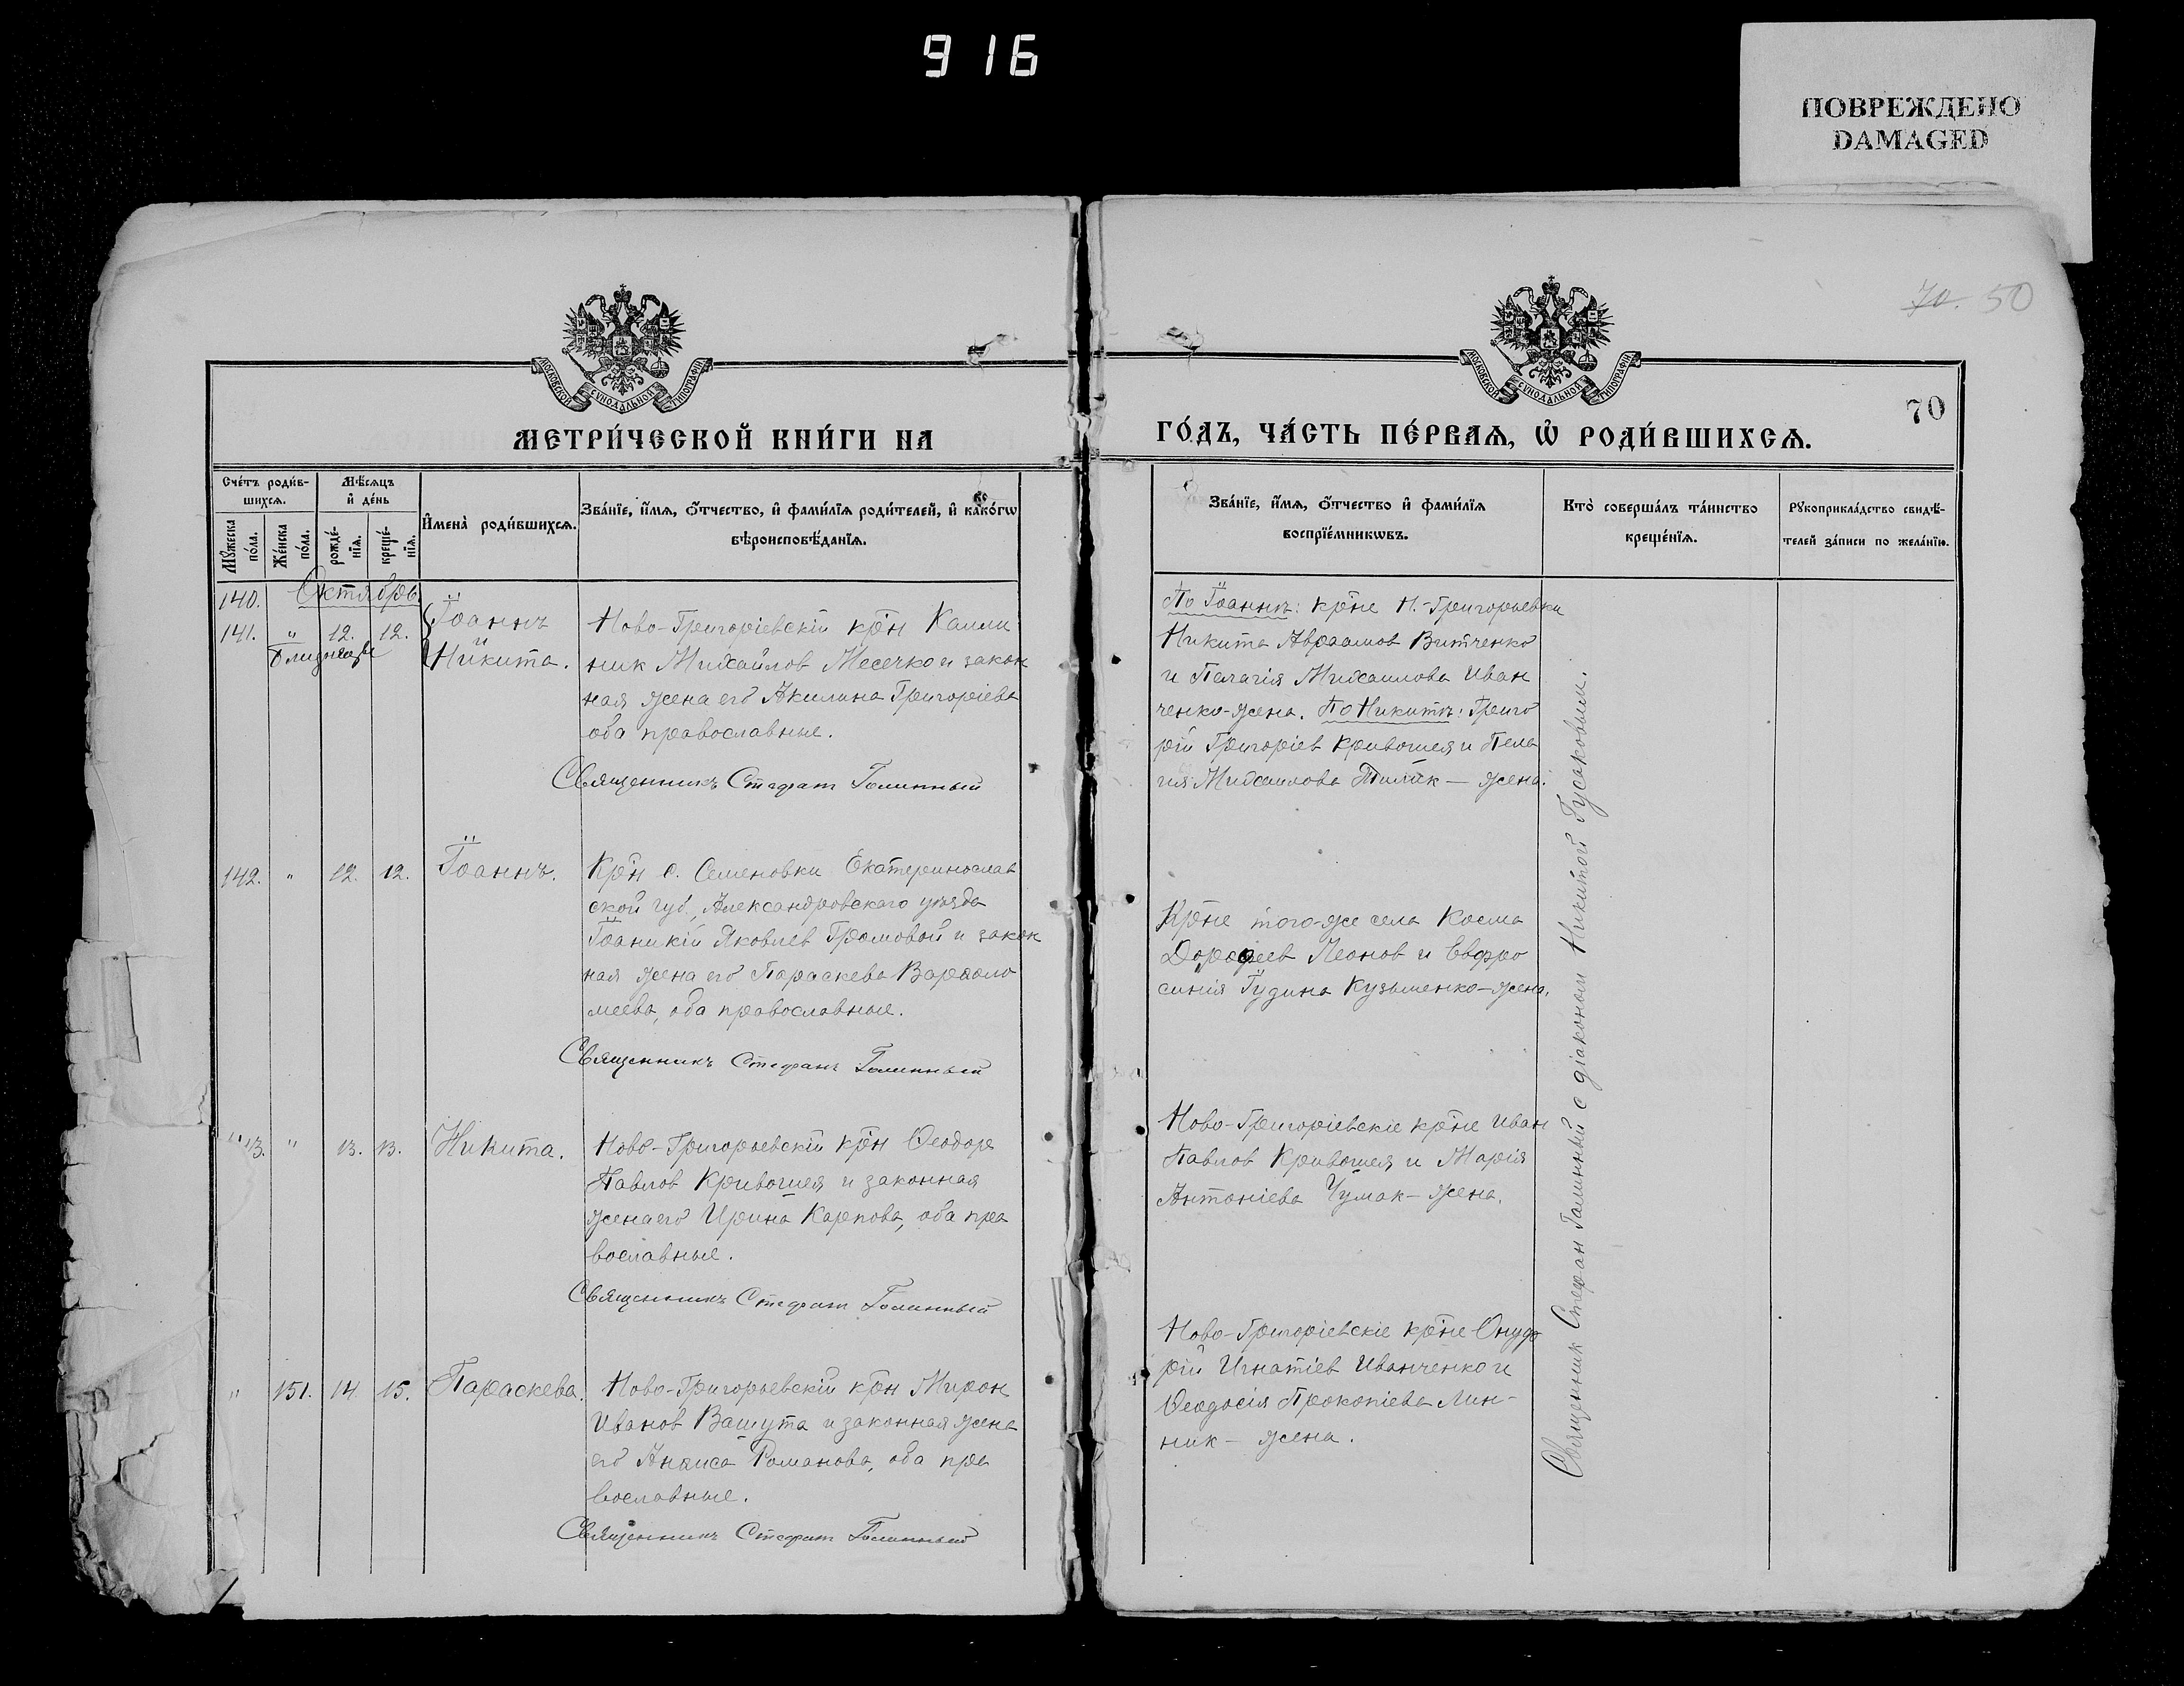 916
ПОВРЕЖДЕНО
DAMAGED
70. 50
МОСКОВСКОЙ СѴНОДАЛЬНОЙ ТИПОГРАФІИ
МОСКОВСКОЙ СѴНОДАЛЬНОЙ ТИПОГРАФІИ
70
МЕТРИ́ЧЕСКОЙ КНИ́ГИ НА
ГО́ДЪ, ЧА́СТЬ ПЕ́РВАѦ, Ѡ РОДИ́ВШИХСѦ.
Сче́тъ роди́в-
шихсѧ.
Мꙋ́жеска
по́ла.
Же́нска
по́ла.
Мѣ́сѧцъ
и҆ де́нь
рожде́-
нїѧ.
креще́-
нїѧ.
И҆мена̀ роди́вшихсѧ.
Зва́нїе, и҆́мѧ, ѻ҆́тчество, и҆ фами́лїѧ роди́телей, и҆ како́гѡ
вѣроисповѣ́данїѧ.
Зва́нїе, и҆́мѧ, ѻ҆́тчество и҆ фами́лїѧ
воспрїе́мникѡвъ.
Кто̀ соверша́лъ та́инство
креще́нїѧ.
Рꙋкоприкла́дство свидѣ́-
телей за́писи по жела́нїю.
Октябрь
140.
141. " 12. 12.
Близнецы
Іоаннъ
и
Никита.
Ново-Григоріевскій крн
ник Михайлов Месечко и закон
ная жена его Акилина Григоріева
оба православные.
Священникъ Стефан Галинный
По Іоаннѣ: крне Н.-Григорьевки
Никита Авраамов Витченко
и Пелагія Михаилова Иван
ченко-жена. По Никитѣ: Григо
рій Григоріев Кривошея и Пела
гія Михаилова – жена.
142. " 12. 12. Іоаннъ.
Крн с. Семеновки Екатеринослав
ской губ., Александровскаго уѣзда
Іоаникій Яковлев Громовой и закон
ная жена его Параскева Варѳоло
меева, оба православные.
Священникъ Стефанъ Галинный
Крне того-же села Косма
Дорофеев Леонов и Евфро
синія Гудина Кузьменко-жена.
"13. " 13. 13. Никита.
Ново-Григорьевскій крн Ѳеодор
Павлов Кривошея и законная
жена его Ирина Карпова, оба пра
вославные.
Священникъ Стефан Галинный
Ново-Григоріевскіе крне Иван
Павлов Кривошея и Марія
Антоніева Чумак – жена.
" 151. 14. 15. Параскева.
Ново-Григорьевскій крн Мирон
Иванов Вашута и законная жена
его Анаиса Романова, оба пра
вославные.
Священникъ Стефан Галинный
Ново-Григоріевскіе крне Онуф
рій Игнатіев Иванченко и
Ѳеодосія Прокопіева Лин-
ник – жена.
Священник Стефан Галинный с діаконом Никитой Гусаковым.